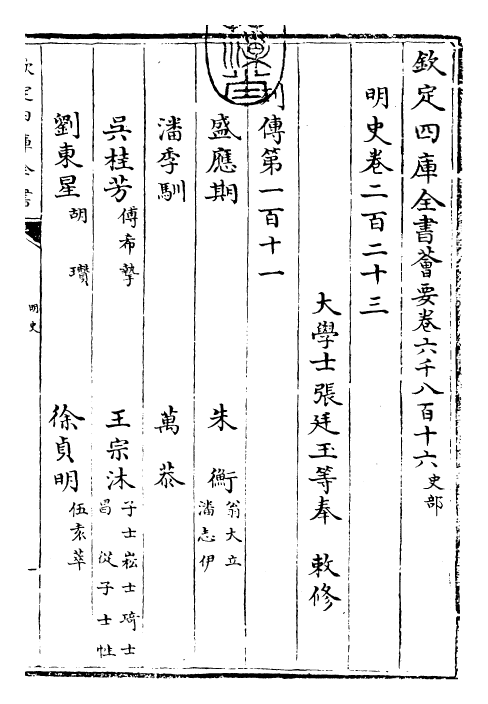 欽定四庫全書薈要卷六千八百十六 史部
明史卷二百二十三
大學士張廷玉等奉 敕修
列傳第一百十一
盛應期 朱衡 翁大立 潘志伊
潘季馴 萬恭
吳桂芳 傅希摯 王宗沐 子士崧 士琦 士昌 從子士性
劉東星 胡瓚 徐貞明 伍袁萃
欽定四庫全書
明史
一